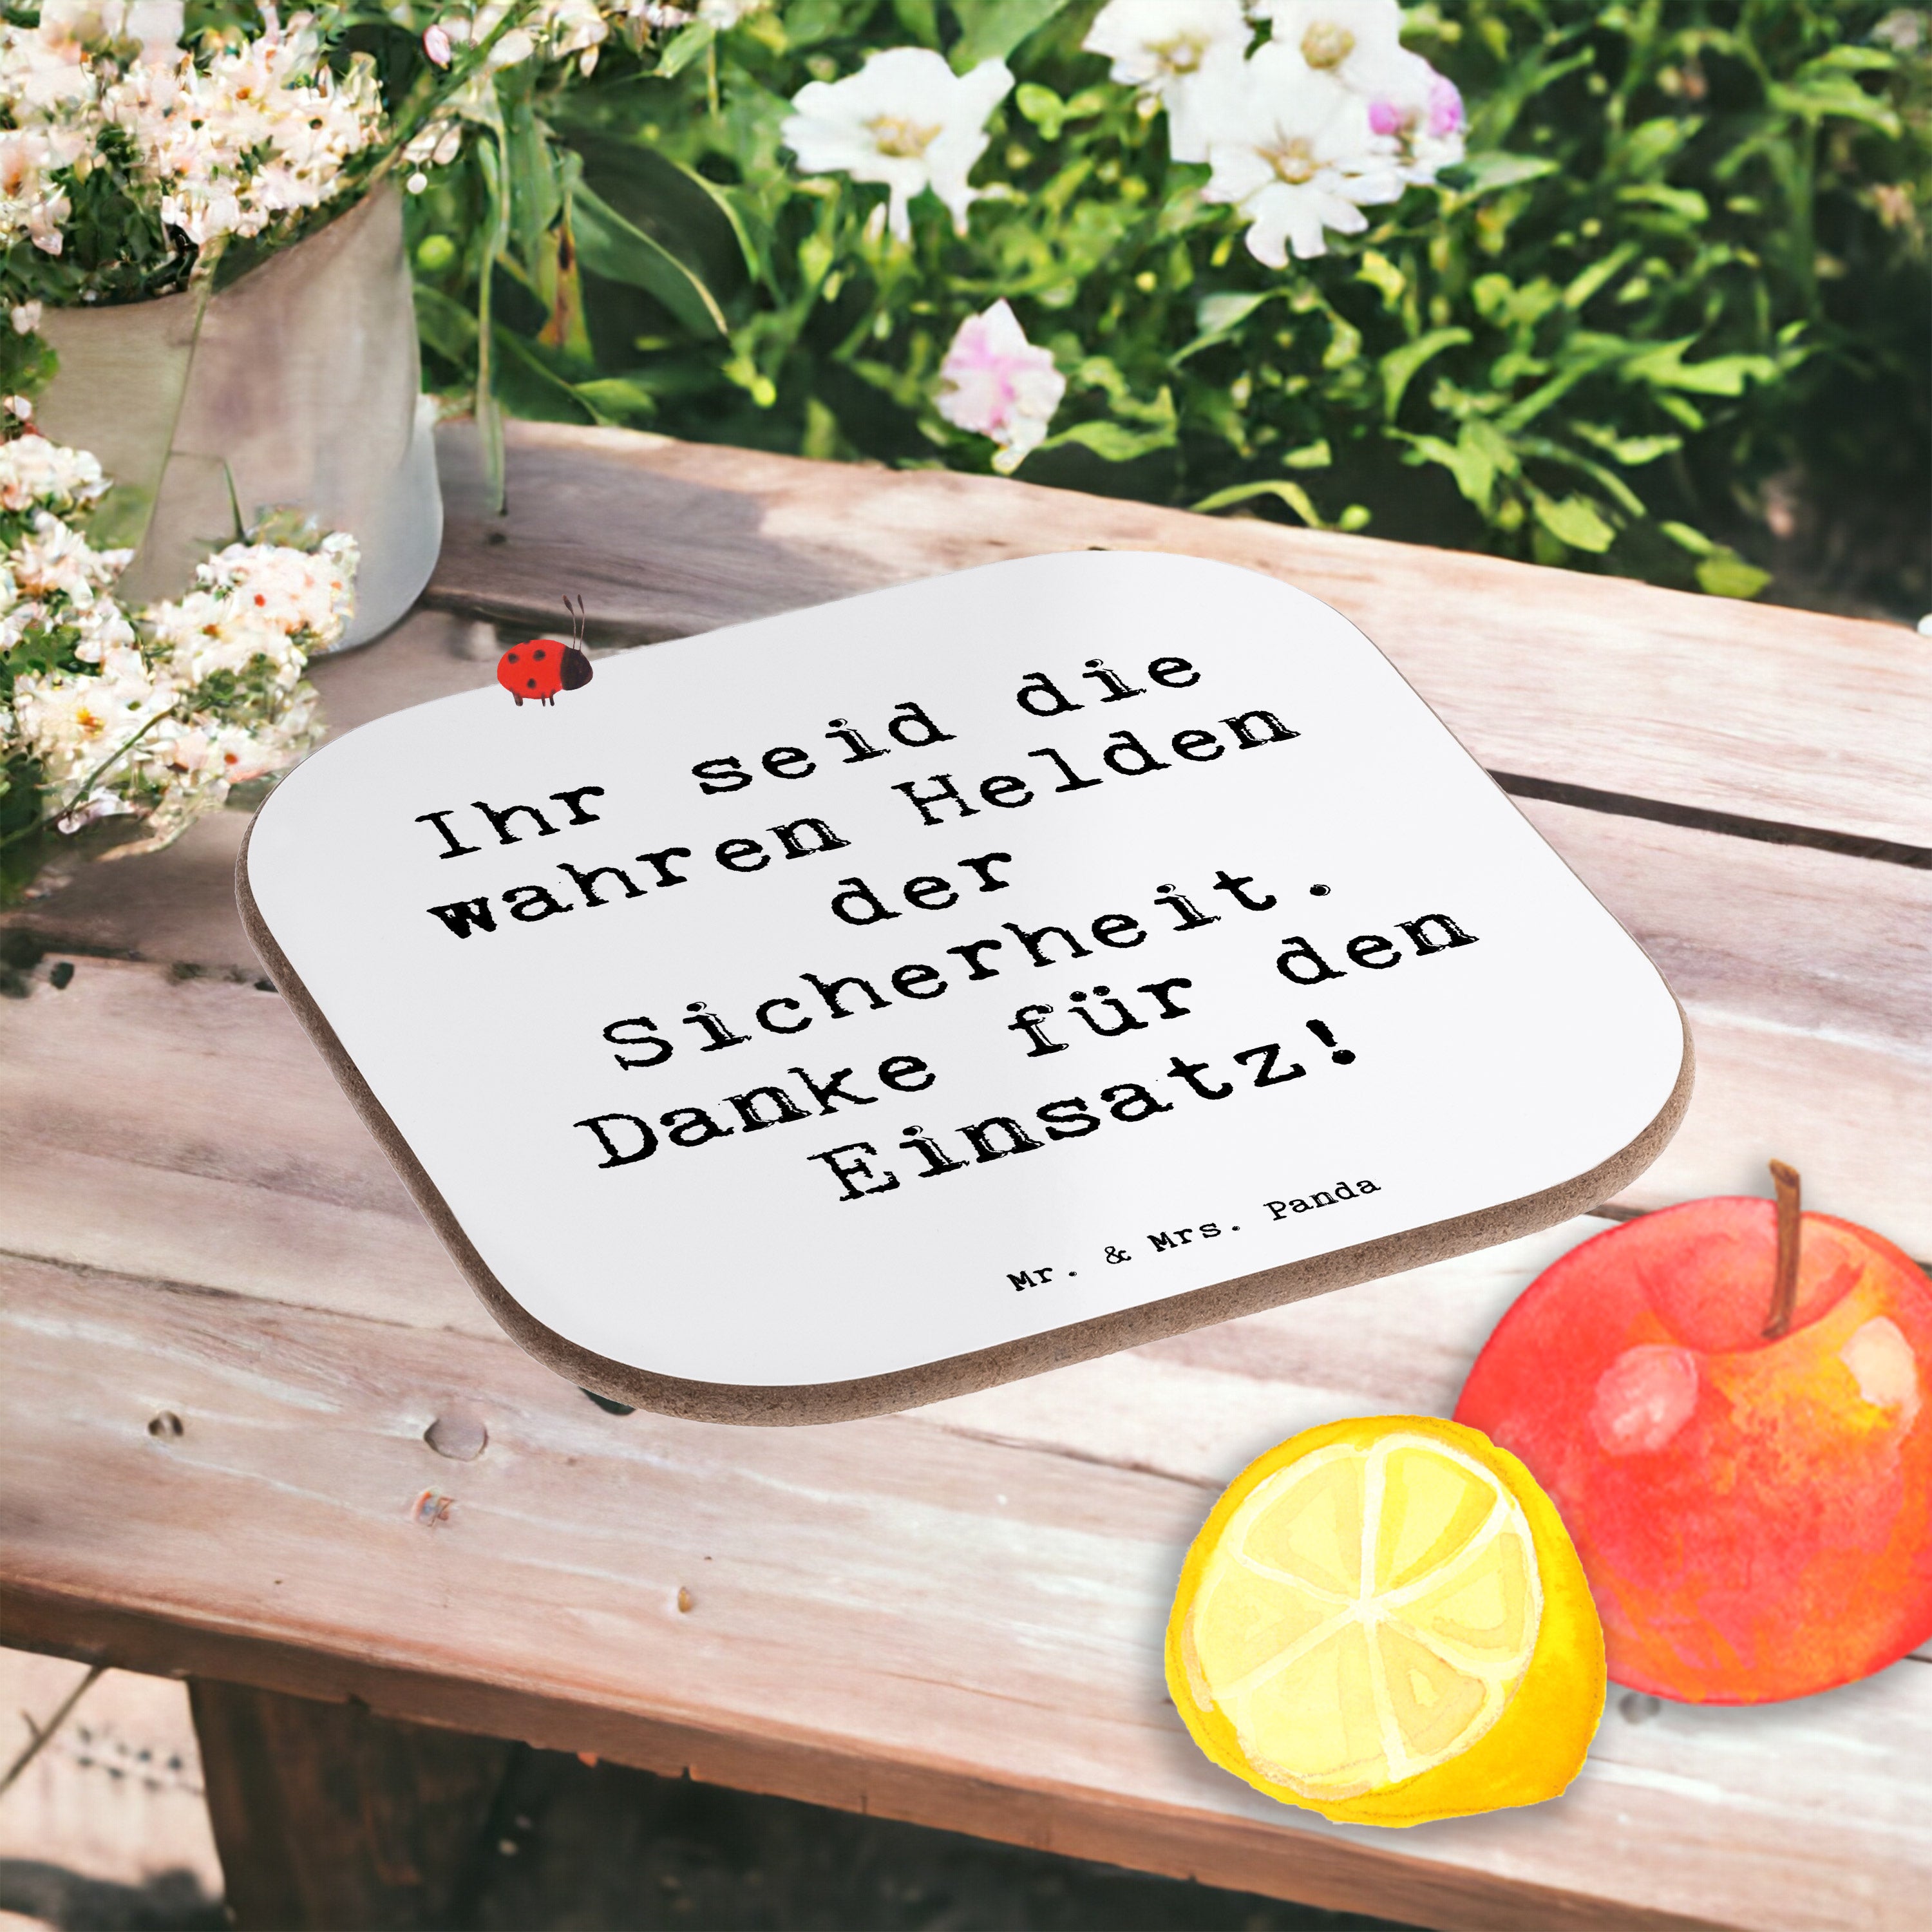 Ihr seid die
wahren Helden
der
Sicherheit.
Danke für den
Einsatz!
Mr. & Mrs. Panda